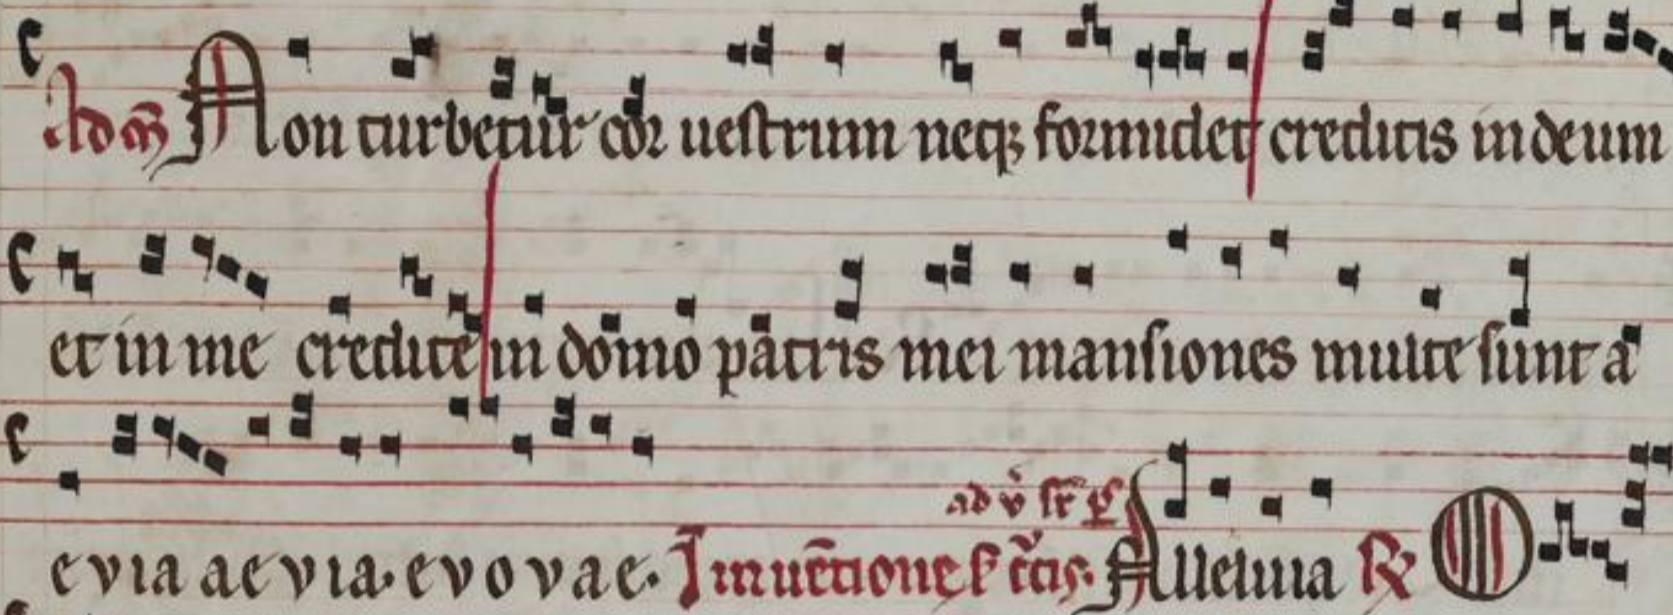 Ad m̄ Non turbetur cor uestrum neqꝫ formidet creditis in deum
et in me credite in domo patris mei mansiones multe sunt a
evia aevia. evovae. Inuētione s̄ c̄cis. ad v̄ Alleluia ℟ O